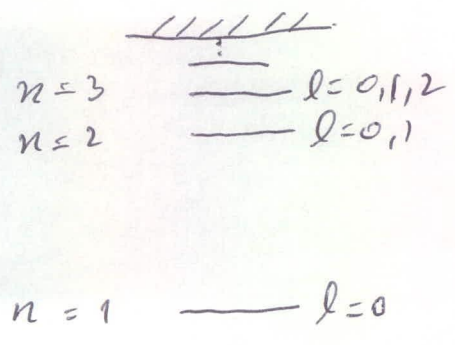 n = 3 l = 0, 1, 2
n = 2 l = 0, 1
n = 1 l = 0